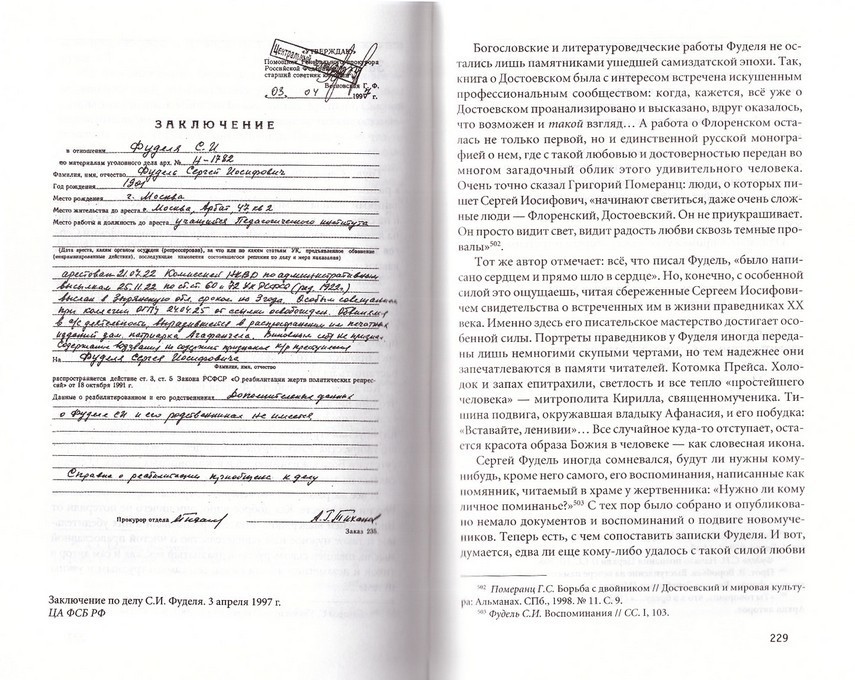 Центральный
«УТВЕРЖДАЮ»
Помощник Генерального прокурора
Российской Федерации
старший советник юстиции
Г. Ф.
03. 04 1997 г.
ЗАКЛЮЧЕНИЕ
в отношении Фуделя С.И
по материалам уголовного дела арх. № Н-1782
Фамилия, имя, отчество Фудель Сергей Иосифович
Год рождения 1901
Место рождения г. Москва
Место жительства до ареста г. Москва, Арбат 47 кв 2
Место работы и должность до ареста учащийся Педагогического института
(Дата ареста, каким органом осужден (репрессирован), за что или по каким статьям УК, предъявленное обвинение
(инкриминированные действия), последующие изменения состоявшегося решения по делу и мера наказания)
арестован 21.07.22 Комиссией НКВД по административным
высылкам 25.11.22 по ст.ст 60 и 72 УК РСФСР (ред. 1922г.)
выслан в Зырянскую обл. сроком на 3 года. Особым совещанием
при коллегии ОГПУ 24.04.25 от ссылки освобожден. Обвинялся
в а/с деятельности, выразившейся в распространении им печатных
изданий патриарха Агафангела. Виновным себя не признал.
Содержание воззвания не содержит признаков к/р преступления
На Фуделя Сергея Иосифовича
Фамилия, имя, отчество
распространяется действие ст. 3, ст. 5 Закона РСФСР «О реабилитации жертв политических репрес-
сий» от 18 октября 1991 г.
Данные о реабилитированном и его родственниках Дополнительных данных
о Фуделе СИ и его родственниках не имеется
Справка о реабилитации приобщена к делу
Прокурор отдела А.Г.Тиханов
Заказ 235
Заключение по делу С.И. Фуделя. 3 апреля 1997 г.
ЦА ФСБ РФ
Богословские и литературоведческие работы Фуделя не ос-
тались лишь памятниками ушедшей самиздатской эпохи. Так,
книга о Достоевском была с интересом встречена искушенным
профессиональным сообществом: когда, кажется, всё уже о
Достоевском проанализировано и высказано, вдруг оказалось,
что возможен и такой взгляд… А работа о Флоренском оста-
лась не только первой, но и единственной русской моногра-
фией о нем, где с такой любовью и достоверностью передан во
многом загадочный облик этого удивительного человека.
Очень точно сказал Григорий Померанц: люди, о которых пи-
шет Сергей Иосифович, «начинают светиться, даже очень слож-
ные люди — Флоренский, Достоевский. Он не приукрашивает.
Он просто видит свет, видит радость любви сквозь темные про-
валы»502.
Тот же автор отмечает: всё, что писал Фудель, «было напи-
сано сердцем и прямо шло в сердце». Но, конечно, с особенной
силой это ощущаешь, читая сбереженные Сергеем Иосифови-
чем свидетельства о встреченных им в жизни праведниках XX
века. Именно здесь его писательское мастерство достигает осо-
бенной силы. Портреты праведников у Фуделя иногда переда-
ны лишь немногими скупыми чертами, но тем надежнее они
запечатлеваются в памяти читателей. Котомка Прейса. Холо-
док и запах епитрахили, светлость и все тепло «простейшего
человека» — митрополита Кирилла, священномученика. Ти-
шина подвига, окружавшая владыку Афанасия, и его побудка:
«Вставайте, ленивии»… Все случайное куда-то отступает, оста-
ется красота образа Божия в человеке — как словесная икона.
Сергей Фудель иногда сомневался, будут ли нужны кому-
нибудь, кроме него самого, его воспоминания, написанные как
помянник, читаемый в храме у жертвенника: «Нужно ли кому
личное поминанье?»503 С тех пор было собрано и опубликова-
но немало документов и воспоминаний о подвиге новомуче-
ников. Теперь есть, с чем сопоставить записки Фуделя. И вот,
думается, едва ли еще кому-либо удалось с такой силой любви
502 Померанц Г.С. Борьба с двойником // Достоевский и мировая культу-
ра: Альманах. СПб., 1998. № 11. С. 9.
503 Фудель С.И. Воспоминания // СС. I, 103.
229